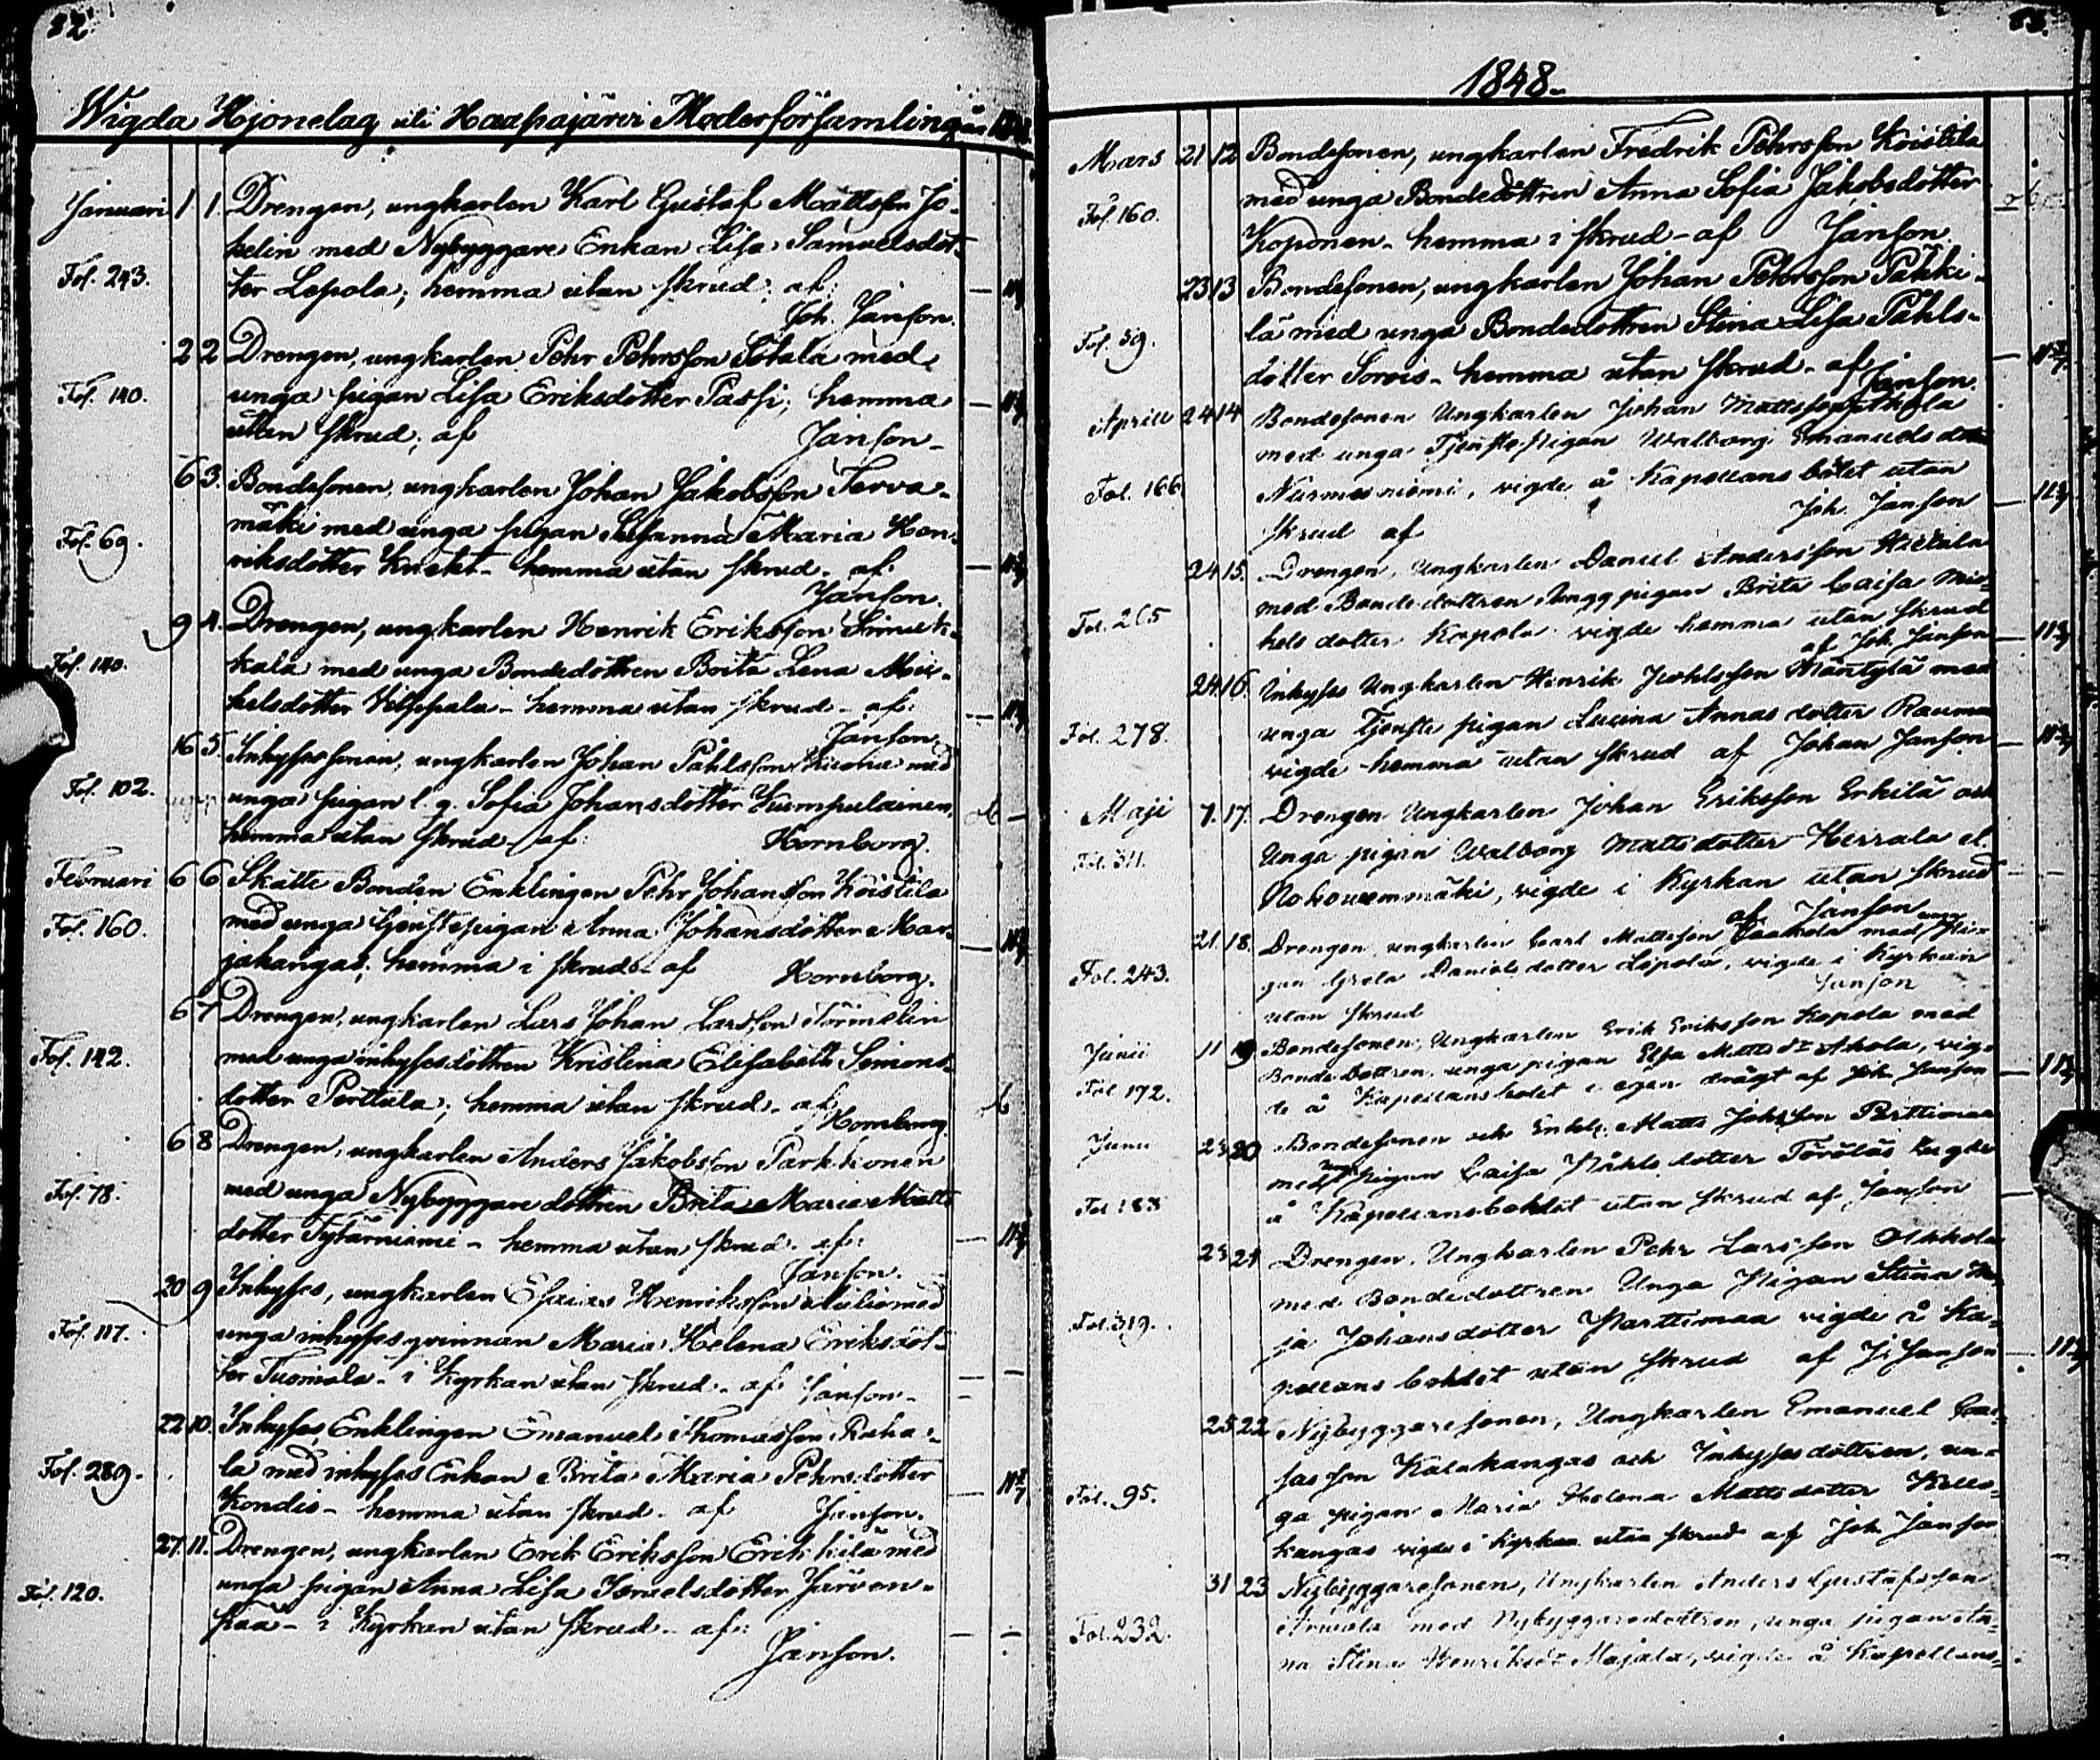 82.
Wigda Hjonelag uti Haapajärvi Moderförsamling år 1848
Januari 1 1. Drengen, ungkarlen Karl Gustaf Mattsson Jo-
kelin med Nybyggare Enkan Lisa Samuelsdot-
Fol. 243. ter Lepola; hemma utan skrud; af:
Joh. Janson.
2 2 Drengen, ungkarlen Pehr Pehrsson Sötala med
Fol. 140. unga pigan Lisa Eriksdotter Passi; hemma
utan skrud; af Janson
6 3. Bondesonen, ungkarlen Johan Jakobsson Terva-
mäki med unga pigan Susanna Maria Hen-
Fol. 69. riksdotter Knekt - hemma utan skrud - af
Janson.
9 4. Drengen, ungkarlen Henrik Eriksson
Fol. 140. kala med unga Bondedottren Brita Lena Mic-
helsdotter Vilppala - hemma utan skrud - af:
Janson
16 5. Inhysessonen, ungkarlen Johan Påhlsson med
Fol. 102. unga pigan l. q. Sofia Johansdotter Kumpulainen,
hemma utan skrud - af: Hornborg.
Februari 6 6 Skatte Bonden Enklingen Pehr Johansson Koistila
Fol. 160. med unga tjenstepigan Anna Johansdotter Har-
jakangas; hemma i skrud - af Hornborg.
6 7 Drengen, ungkarlen Lars Johan Larsson Törmelin
Fol. 142. med unga inhysesdottren Kristina Elisabeth Simons-
dotter Perttula; hemma utan skrud. af
Hornborg
6 8 Drengen, ungkarlen Anders Jakobsson Parkkonen
Fol. 78. med unga Nybyggare dottren Brita Maria Matts
dotter Tytärniemi - hemma utan skrud. af:
Janson.
20 9 Inhyses, ungkarlen Esaias Henriksson med
Fol. 117. unga inhyses qvinnan Maria Helena Eriksdot-
ter Tuomala - i Kyrkan utan skrud - af Janson -
22 10. Inhyses Enklingen Emanuel Thomasson Raha-
Fol. 289. la med inhyses Enkan Brita Maria Pehrsdotter
Kondis - hemma utan skrud. af Janson.
27 11. Drengen, ungkarlen Erik Eriksson Erikkilä med
Fol. 120. unga pigan Anna Lisa Israelsdotter Järven-
pää - i Kyrkan utan skrud - af:
Janson.
83.
1848.
Mars 21 12 Bondesonen, ungkarlen Fredrik Pehrsson Koistila
Fol. 160. med unga Bondedottren Anna Sofia Jakobsdotter
Koponen - hemma i skrud - af Janson
23 13 Bondesonen, ungkarlen Johan Pehrsson Pähki-
Fol. 59. lä med unga Bondedottren Stina Lisa Påhls-
dotter Sorvis - hemma utan skrud - af
Janson.
Aprill 24 14 Bondesonen Ungkarlen Johan Mattsson Ahola
med unga Tjenste pigan Walborg Emanuels dotter
Fol. 166 Nurmesniemi, vigde å Kapellans bolet utan
skrud af Joh. Janson
24 15. Drengen, Ungkarlen Daniel Andersson Hietala
Fol. 265 med Bonde dottren Unga pigan Brita Caisa Mic-
hels dotter Kopola vigde hemma utan skrud
af Joh Janson
24 16. Inhyses Ungkarlen Henrik Juhlsson Mäntylä med
Fol. 278. unga Tjenste pigan Lucina Annas dotter Rauma
vigde hemma utan skrud af Johan Janson
Maji 7. 17. Drengen Ungkarlen Johan Eriksson Erkilä och
Fol. 311. Unga pigan Walborg Matts dotter Herrala el.
Nokouvemmäki, vigde i Kyrkan utan skrud
af Janson
21. 18. Drengen ungkarlen Carl Mattsson med unga Pi-
Fol. 243. gan Greta Daniels dotter Lepola, vigde i Kyrkan
utan skrud Janson
Junii 11 19 Bondesonen, Ungkarlen Erik Eriksson Kopola med
Bonde dottren unga pigan Elsa Matts dr Ahola, vig-
Fol 172. de å Kapellans bolet i egen drägt af Joh Janson
Junii 23 20 Bondesonen och Enkl. Matts Johsson Perttimaa
med unga pigan Caisa Påhls dotter Törölas vigde
Fol 183 å Kapellansbohlet utan skrud af Janson
23 21 Drengen, Ungkarlen Pehr Larsson Olkkola
med Bondedottren Unga Pigan Stina
Fol. 319. Johansdotter Perttimaa vigde å Ka-
pellans bohlet utan skrud af J. Janson
25 22 Nybyggaresonen, Ungkarlen Emanuel
sasson Kalakangas och Inhysesdottren, un-
Fol. 95. ga pigan Maria Helena Matts dotter Kello-
kangas vigde i Kyrkan utan skrud af Joh Janson
31 23 Nybyggaresonen, Ungkarlen Anders Gustafsson
med Nybyggaredottren, unga pigan An-
Fol. 232. na Stina Henriksdr Majala, vigde å Kapellans-